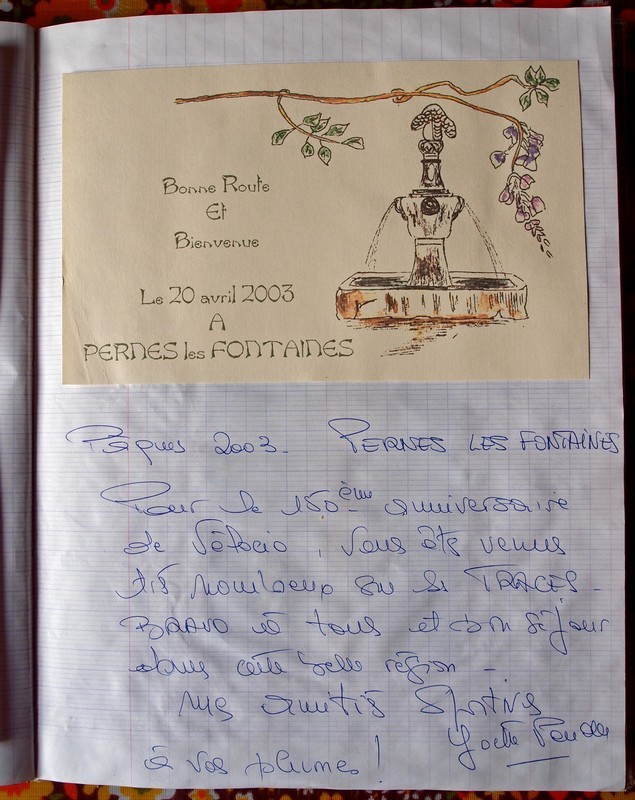 Bonne Route
Et
Bienvenue
Le 20 avril 2003
A
PERNES les FONTAINES
Pâques 2003. PERNES LES FONTAINES
Pour le 150ème anniversaire
de Vélocio, vous êtes venus
très nombreux sur ses TRACES -
BRAVO à tous et bon séjour
dans cette belle région -
mes amitiés Sportives
à vos plumes !